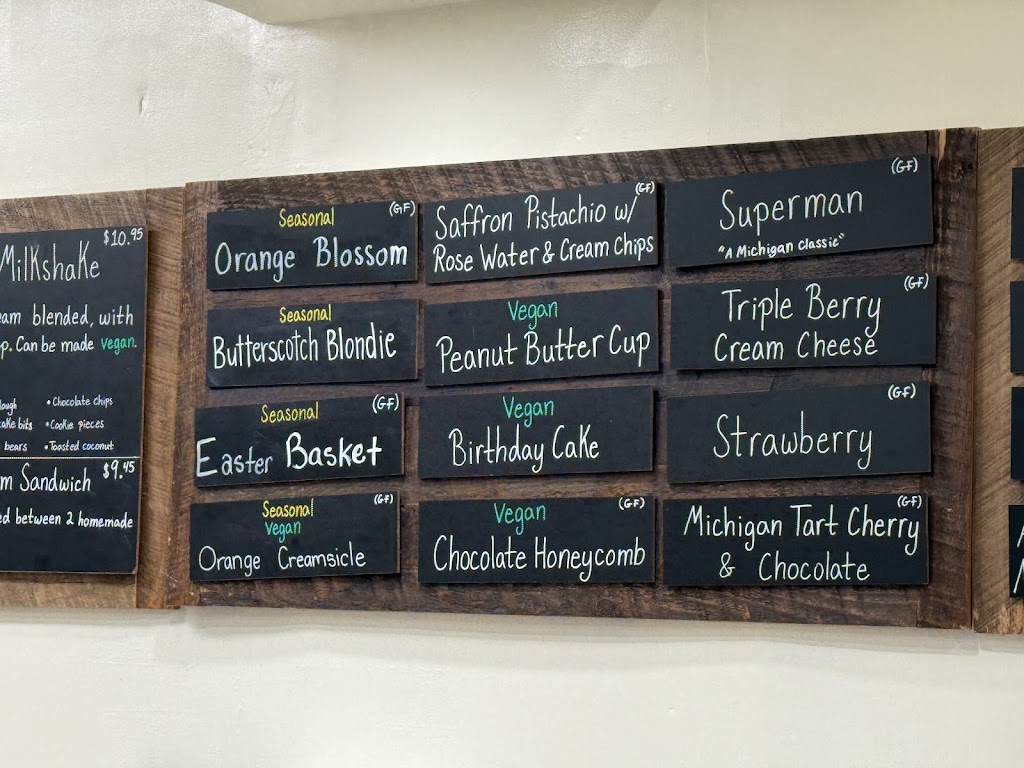 MilkshaKe
$10.95
blended, with
Can be made vegan.
• Chocolate chips
bits
• Cookie pieces
bears
• Toasted coconut
Sandwich
$9.45
between 2 homemade
Seasonal
(GF)
Orange Blossom
Seasonal
Butterscotch Blondie
Seasonal
(GF)
Easter Basket
Seasonal
(GF)
Vegan
Orange Creamsicle
(GF)
Saffron Pistachio w/
Rose Water & Cream Chips
Vegan
Peanut Butter Cup
Vegan
Birthday CaKe
Vegan
(GF)
Chocolate Honeycomb
(GF)
Superman
"A Michigan Classic"
(GF)
Triple Berry
Cream Cheese
(GF)
Strawberry
(GF)
Michigan Tart Cherry
& Chocolate